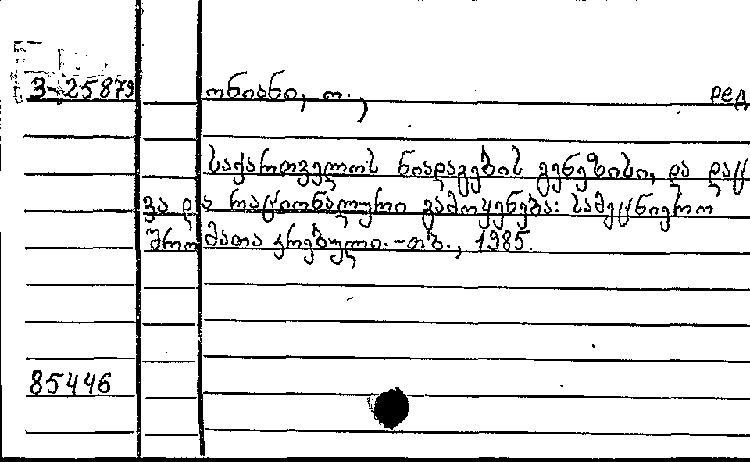 3-25879 ონიანი, ო., ред
საქართველოს ნიადაგების გენეზისი, და დაც
ვა და რაციონალური გამოყენება: სამეცნიერო
შრომათა კრებული.-თბ., 1985.
85446